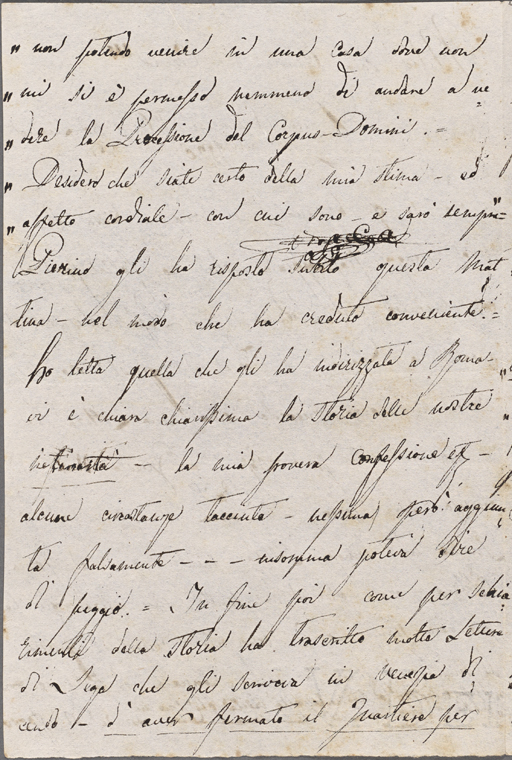 " non potendo venire in una casa dove non
" mi si è permesso nemmeno di andare a ve=
" dere la Processione del Corpus-Domini. =
" Desidero che siate certo della mia stima - ed
" affetto cordiale - con cui sono - e sarò sempre" =
Pierino gli ha risposto subito questa mat
tina - nel modo che ha creduto conveniente. =
Ho letta quella che gli ha indirizzata a Roma-
vi è chiara chiarissima la storia delle nostre
- la mia povera Confessione -
alcune circostanze tacciute - nessuna però aggiun
ta falsamente - - - insomma poteva dire
di peggio. = In fine poi come per schia
rimenti della storia ha trascritto molte Lettere
di che gli scriveva in Venezia di
cendo - d'aver fermato il Quartiere per